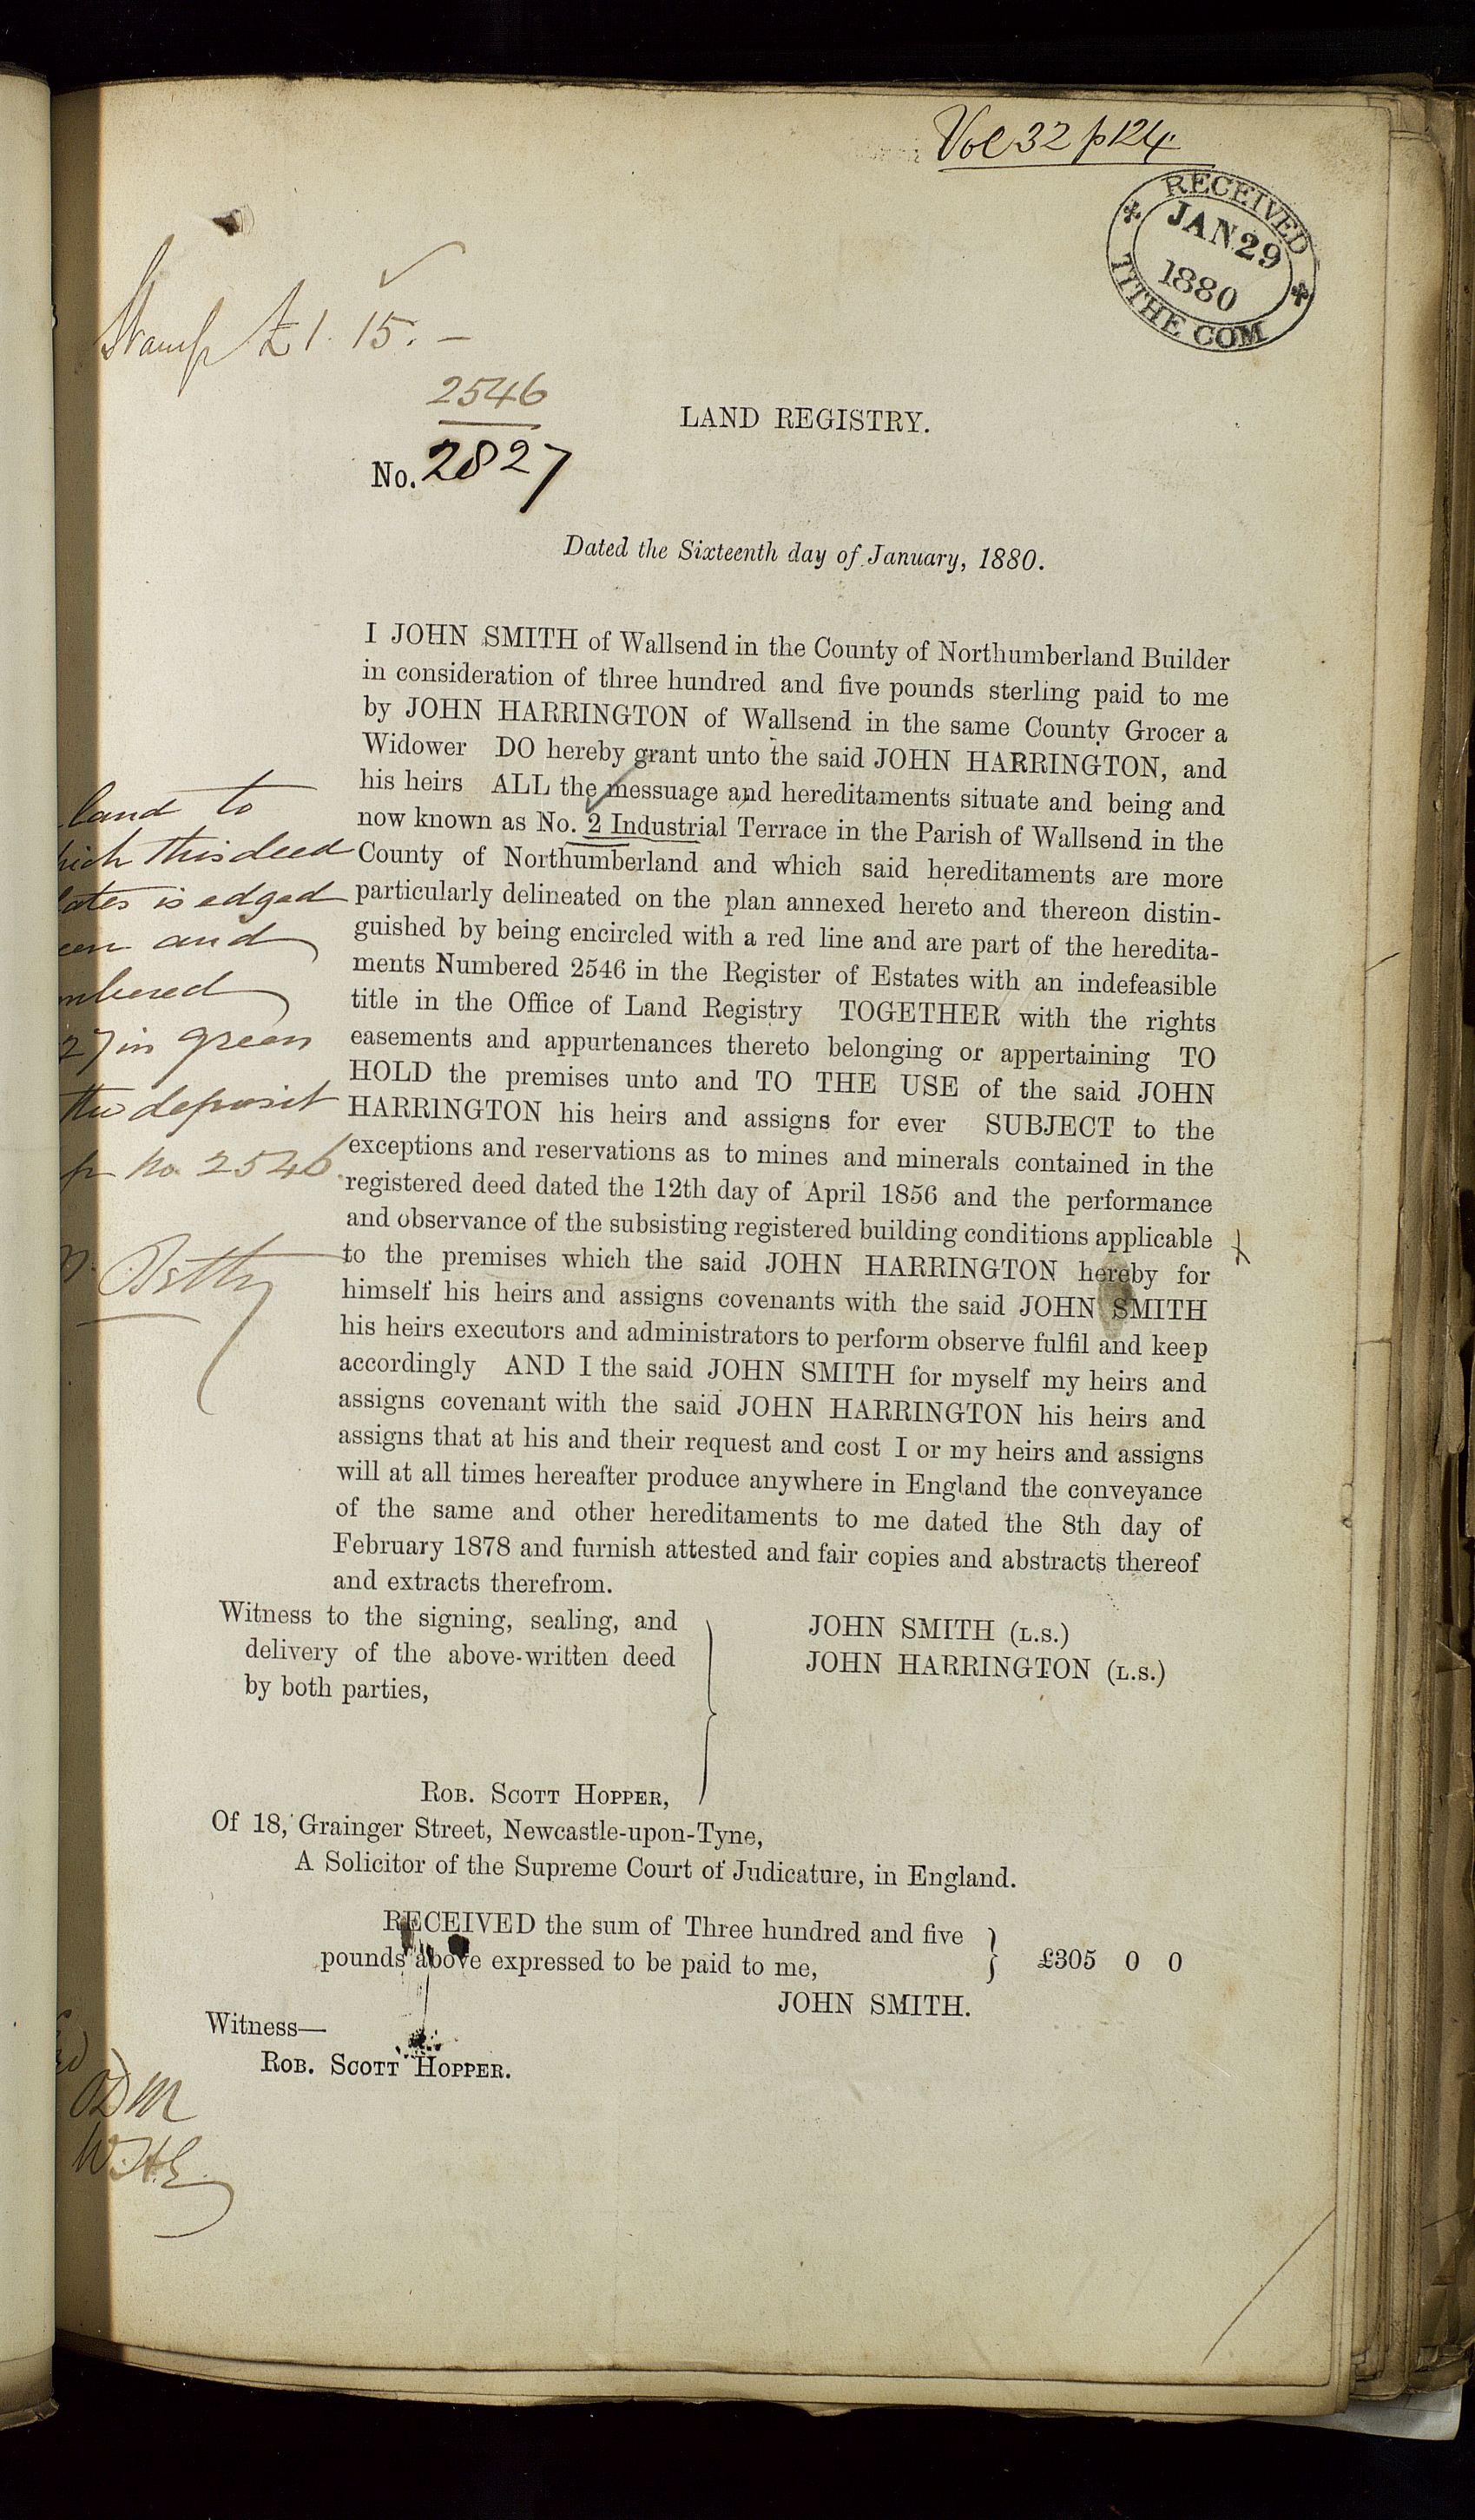 Vol 32 p 124
RECEIVED
JAN 29
1880
TITHE COM
Stamp £1. 15. –
2546
LAND REGISTRY.
No. 2827
Dated the Sixteenth day of January, 1880.
I JOHN SMITH of Wallsend in the County of Northumberland Builder
in consideration of three hundred and five pounds sterling paid to me
by JOHN HARRINGTON of Wallsend in the same County Grocer a
Widower DO hereby grant unto the said JOHN HARRINGTON, and
his heirs ALL the messuage and hereditaments situate and being and
now known as No. 2 Industrial Terrace in the Parish of Wallsend in the
County of Northumberland and which said hereditaments are more
particularly delineated on the plan annexed hereto and thereon distin-
guished by being encircled with a red line and are part of the heredita-
ments Numbered 2546 in the Register of Estates with an indefeasible
title in the Office of Land Registry TOGETHER with the rights
easements and appurtenances thereto belonging or appertaining TO
HOLD the premises unto and TO THE USE of the said JOHN
HARRINGTON his heirs and assigns for ever SUBJECT to the
exceptions and reservations as to mines and minerals contained in the
registered deed dated the 12th day of April 1856 and the performance
and observance of the subsisting registered building conditions applicable
to the premises which the said JOHN HARRINGTON hereby for
himself his heirs and assigns covenants with the said JOHN SMITH
his heirs executors and administrators to perform observe fulfil and keep
accordingly AND I the said JOHN SMITH for myself my heirs and
assigns covenant with the said JOHN HARRINGTON his heirs and
assigns that at his and their request and cost I or my heirs and assigns
will at all times hereafter produce anywhere in England the conveyance
of the same and other hereditaments to me dated the 8th day of
February 1878 and furnish attested and fair copies and abstracts thereof
and extracts therefrom.
land to
this deed
is edged
and
in green
the deposit
No. 2546
Witness to the signing, sealing, and
delivery of the above-written deed
by both parties,
JOHN SMITH (L.S.)
JOHN HARRINGTON (L.S.)
ROB. SCOTT HOPPER,
Of 18, Grainger Street, Newcastle-upon-Tyne,
A Solicitor of the Supreme Court of Judicature, in England.
RECEIVED the sum of Three hundred and five
pounds above expressed to be paid to me,
£305 0 0
JOHN SMITH.
Witness—
ROB. SCOTT HOPPER.